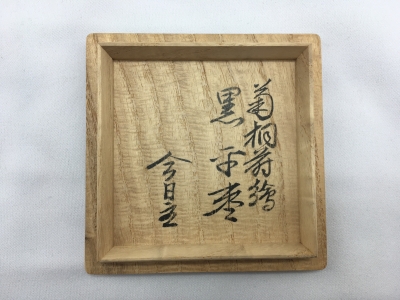 菊桐蒔繪
黒平棗
今日主